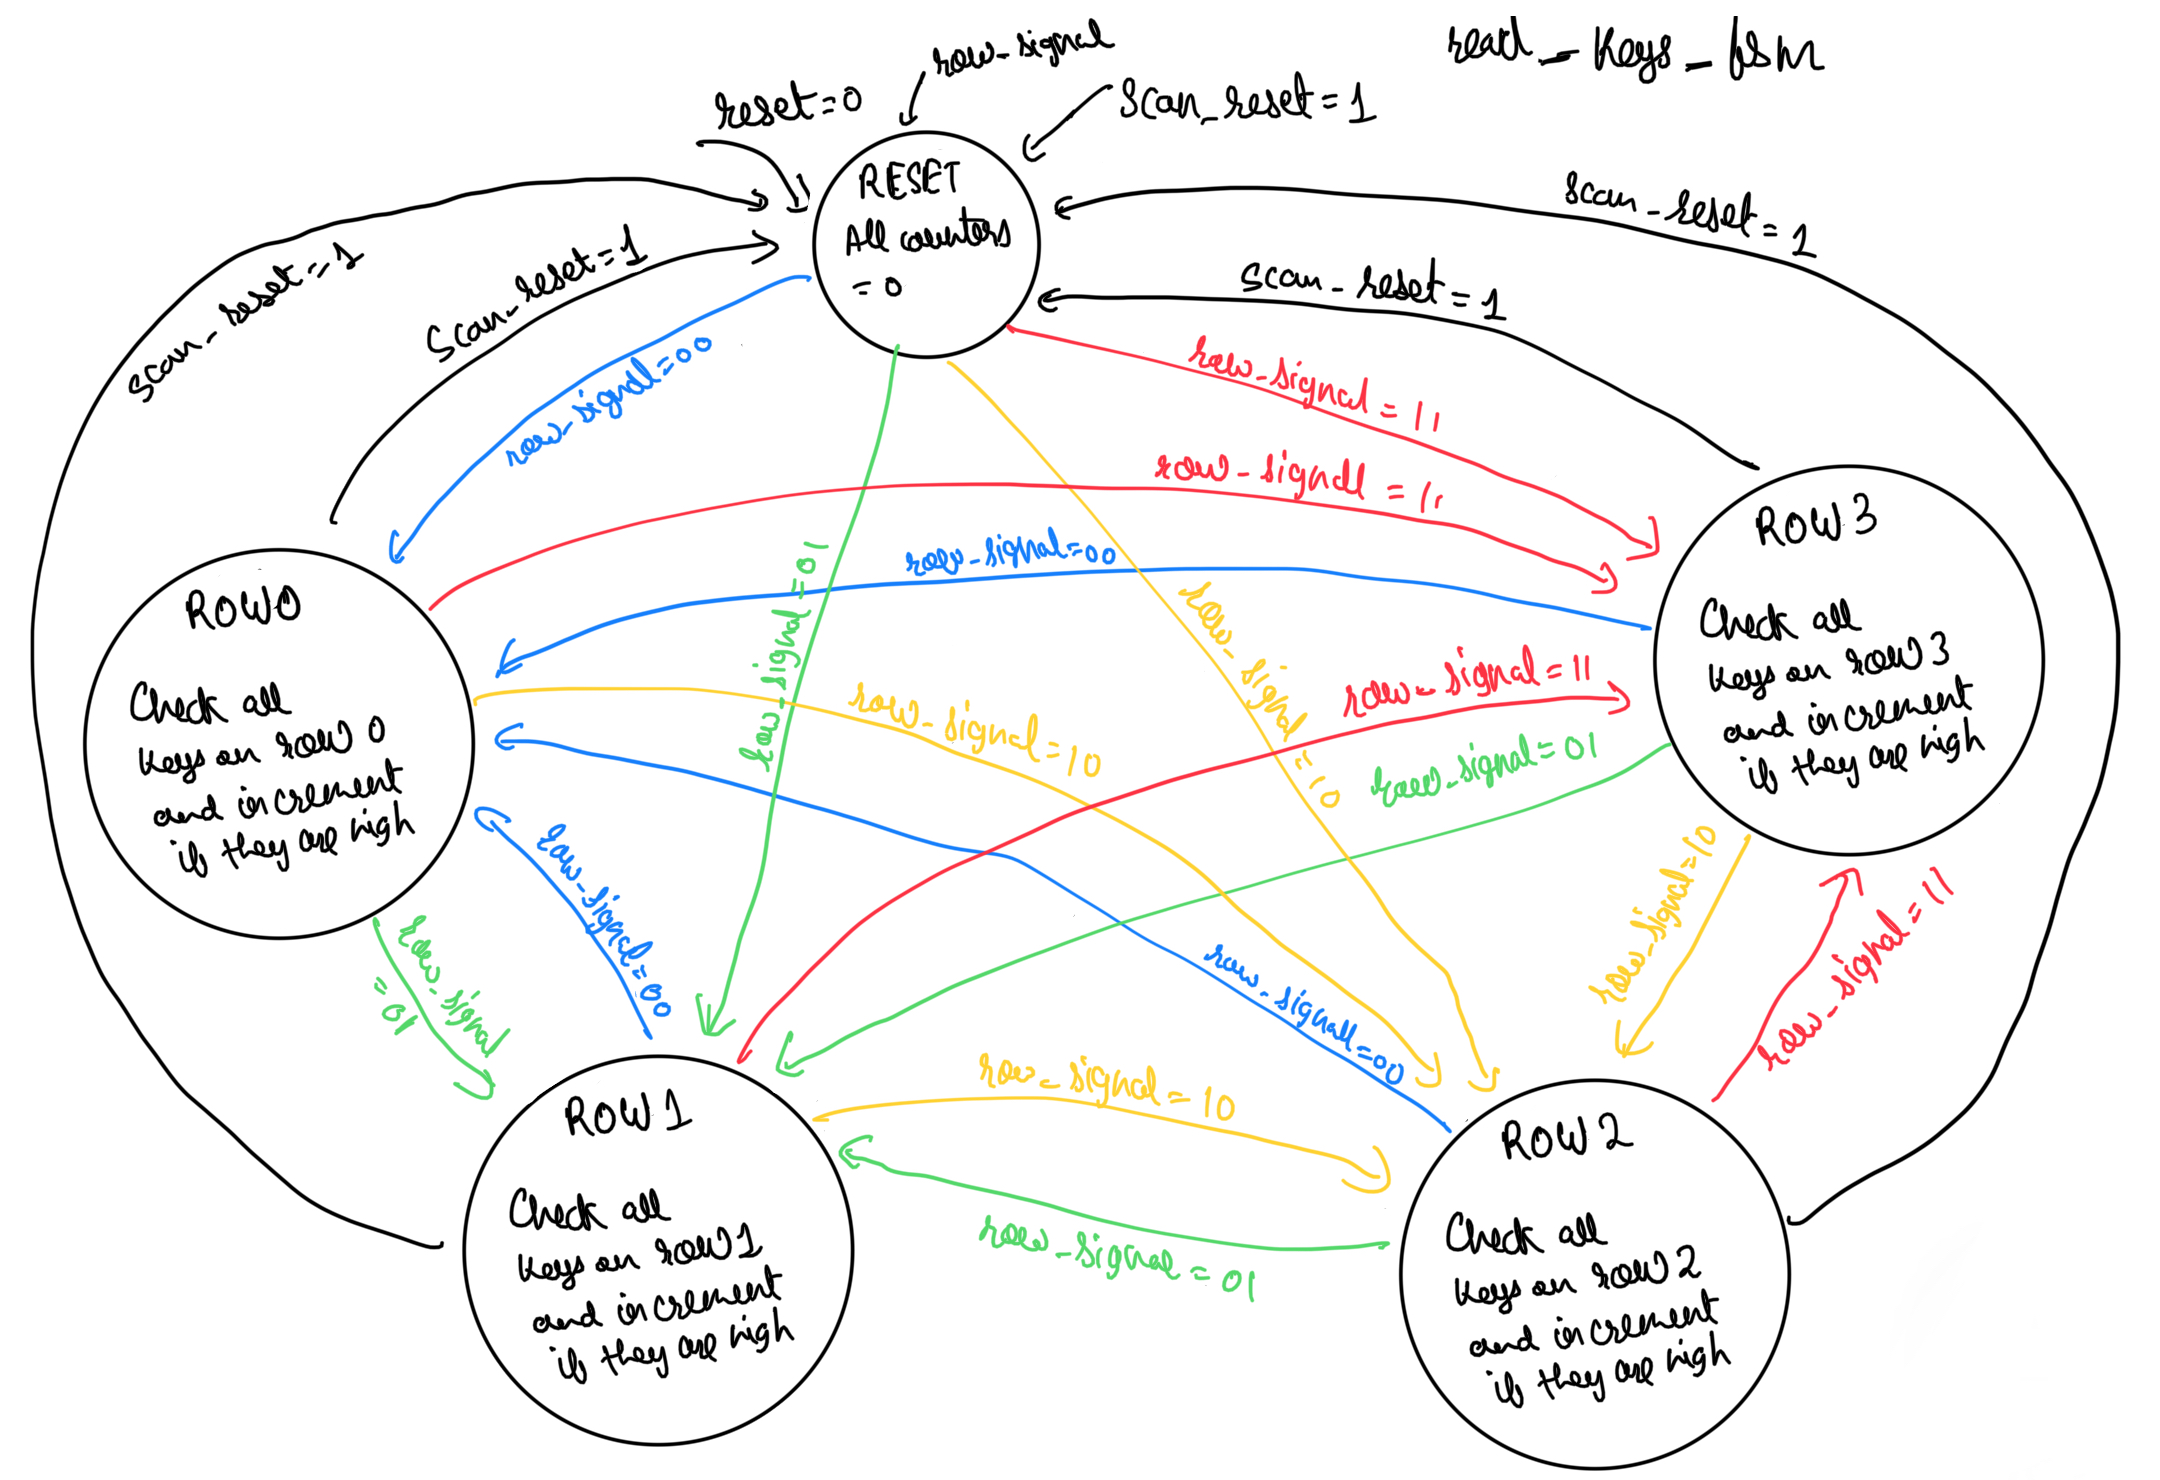 read_keys_fsm
row_signal
reset=0
scan_reset=1
RESET
All counters
=0
scan_reset=1
scan_reset=1
scan_reset=1
scan_reset=1
row_signal=00
row_signal=11
row_signal=11
row_signal=00
row_signal=01
row_signal=10
row_signal=10
row_signal=11
row_signal=01
ROW0
Check all
keys on row 0
and increment
if they are high
ROW3
Check all
keys on row 3
and increment
if they are high
row_signal=00
row_signal
=01
row_signal=00
row_signal=10
row_signal=11
row_signal=10
row_signal=01
ROW1
Check all
keys on row 1
and increment
if they are high
ROW2
Check all
keys on row 2
and increment
if they are high